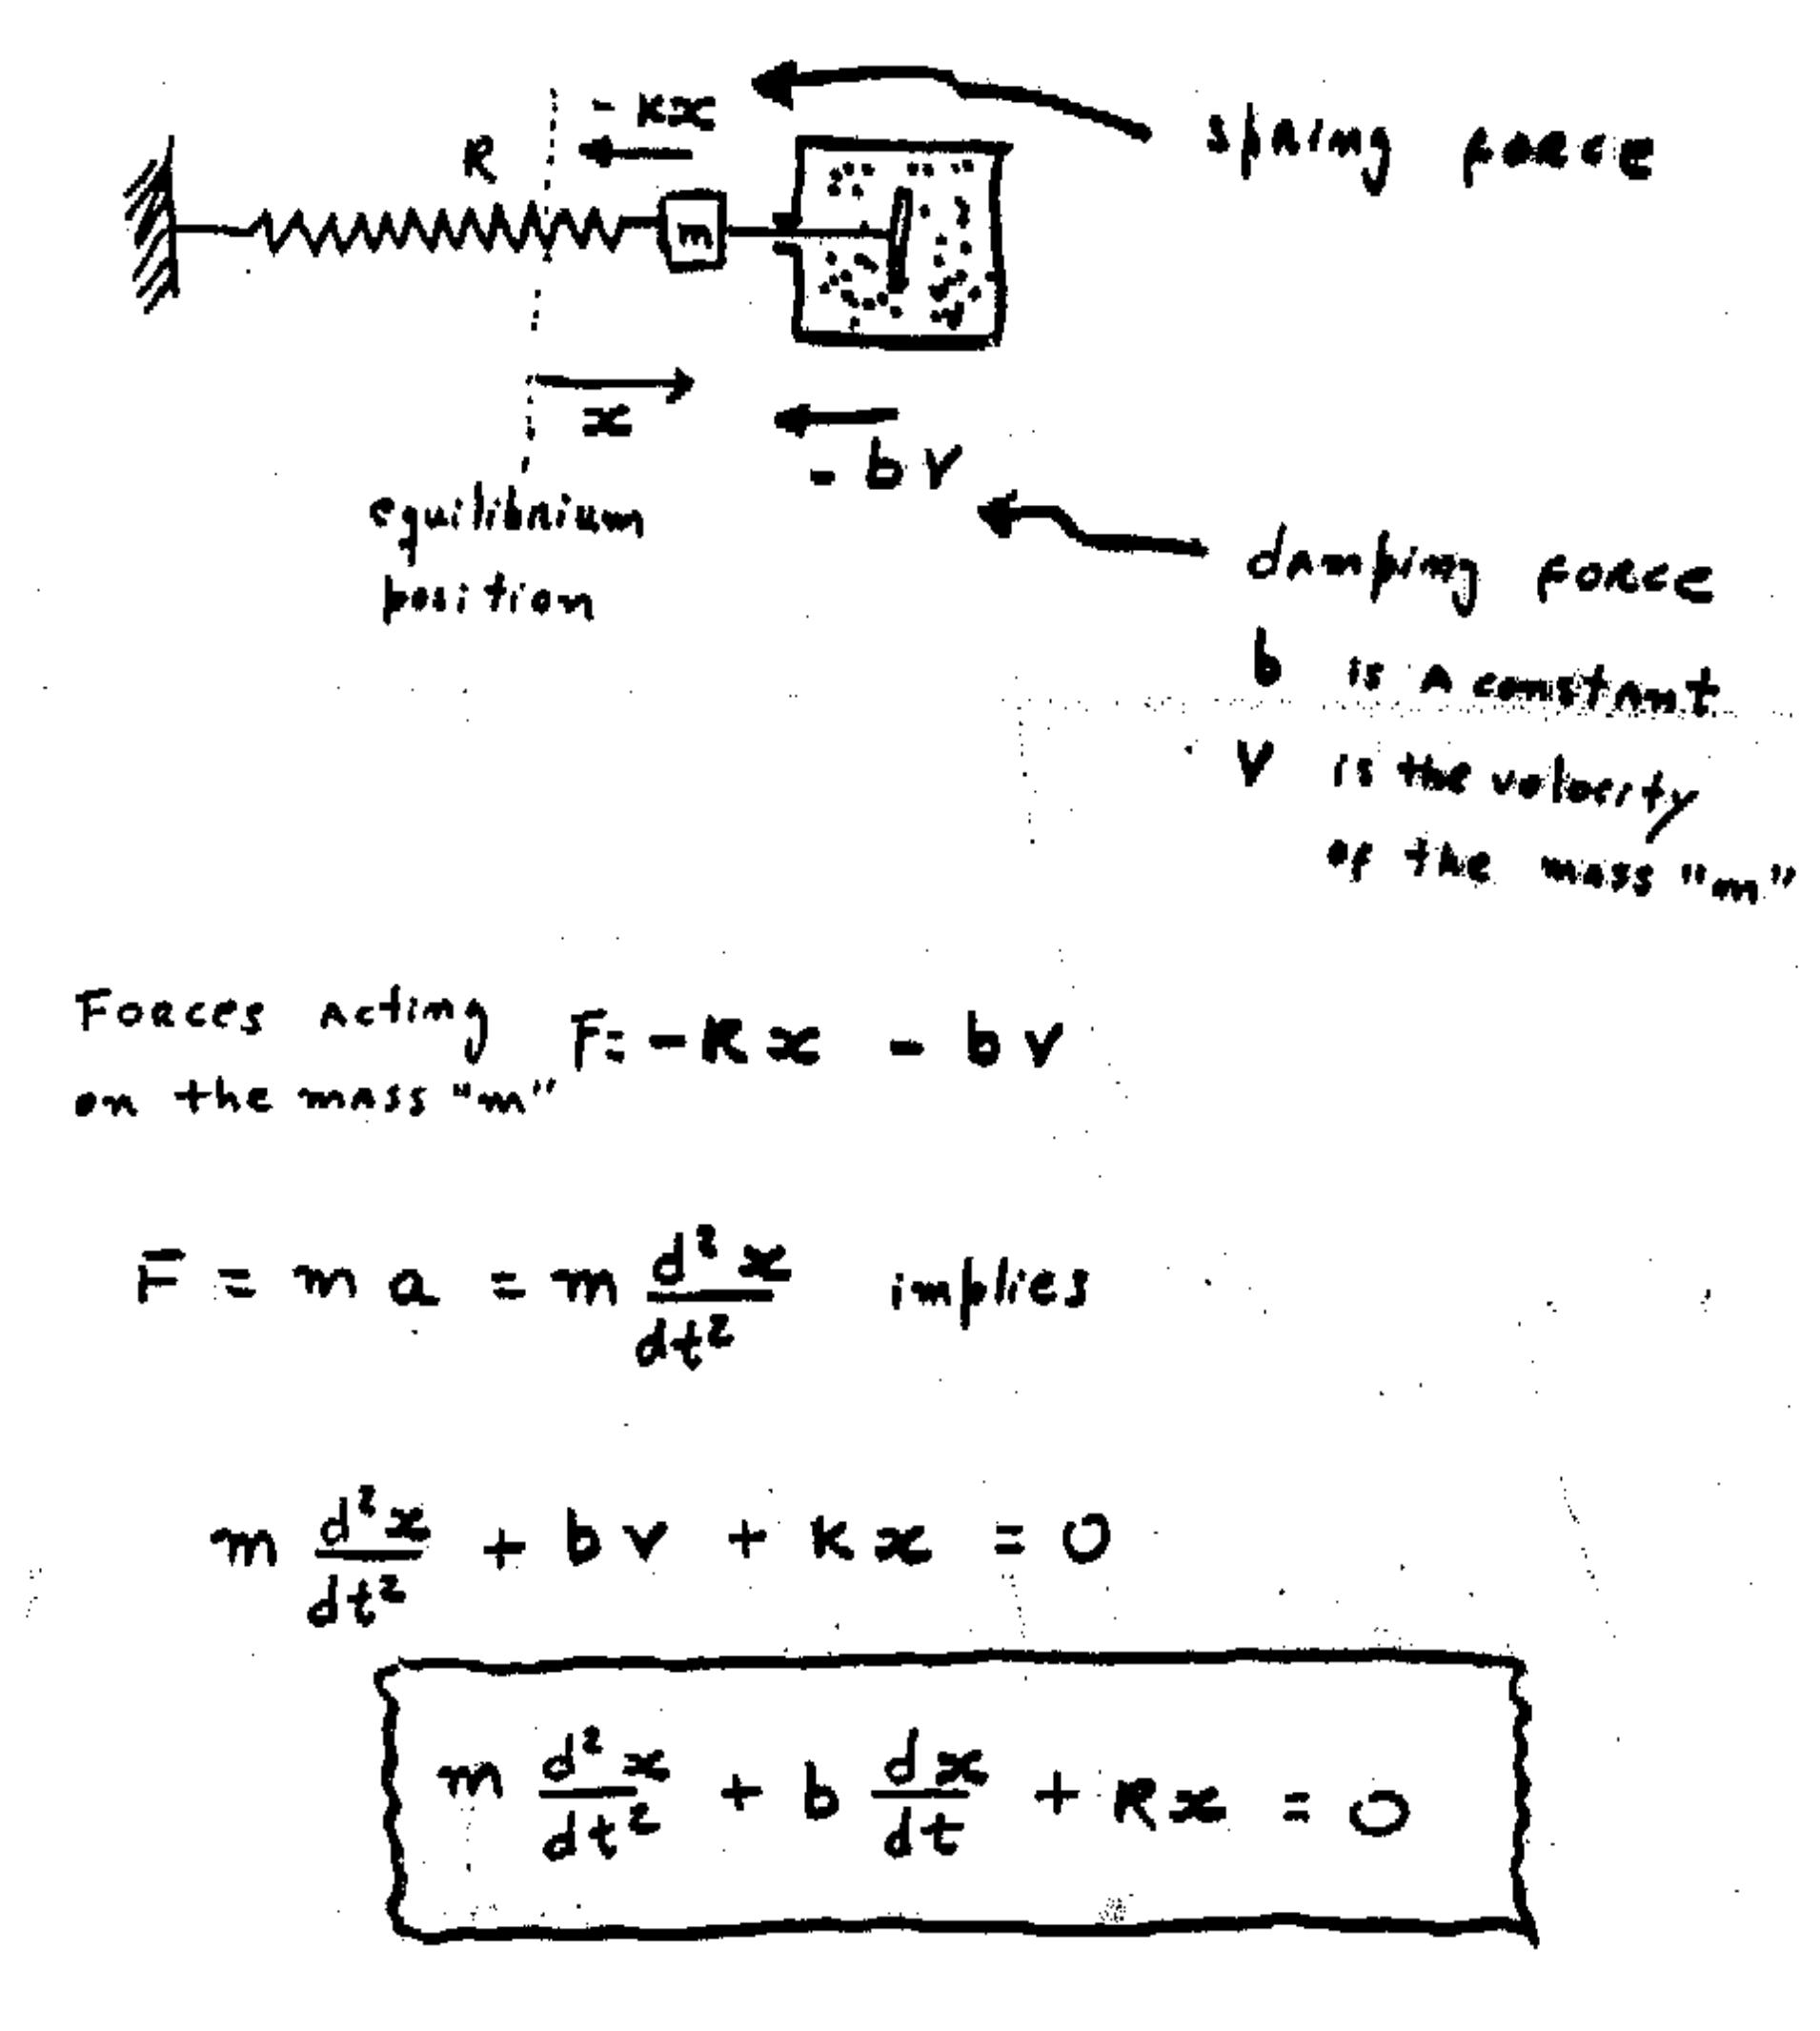 - kx
spring force
k
m
x
- bv
equilibrium
position
damping force
b is a constant
v is the velocity
of the mass "m"
Forces acting F = - kx - bv
on the mass "m"
F = ma = m d²x/dt² implies
m d²x/dt² + bv + kx = 0
m d²x/dt² + b dx/dt + kx = 0